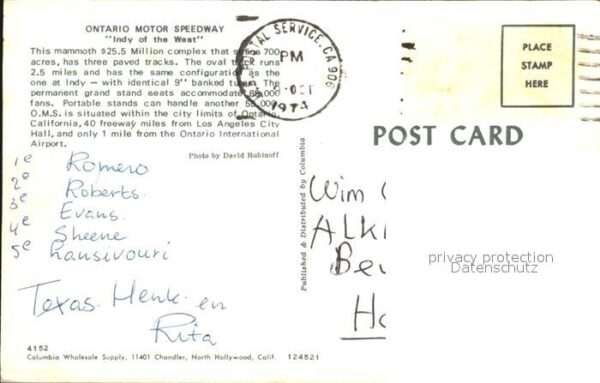 ONTARIO MOTOR SPEEDWAY
"Indy of the West"
This mammoth $25.5 Million complex that 700
acres, has three paved tracks. The oval runs
2.5 miles and has the same configuration as the
one at Indy — with identical 9° banked The
permanent grand stand seats accommodate
fans. Portable stands can handle another 55,000.
O.M.S. is situated within the city limits of Ontario,
California, 40 freeway miles from Los Angeles City
Hall, and only 1 mile from the Ontario International
Airport.
Photo by David Rubinoff
1e Romero
2e Roberts.
3e Evans.
4e Sheene
5e Lansivouri
Texas. Henk. en
Rita
4152
Columbia Wholesale Supply, 11401 Chandler, North Hollywood, Calif. 124521
Published & Distributed by Columbia
POSTAL SERVICE, CA 906
PM
OCT
1974
PLACE
STAMP
HERE
POST CARD
Wim
ALK
Be
H
privacy protection
Datenschutz